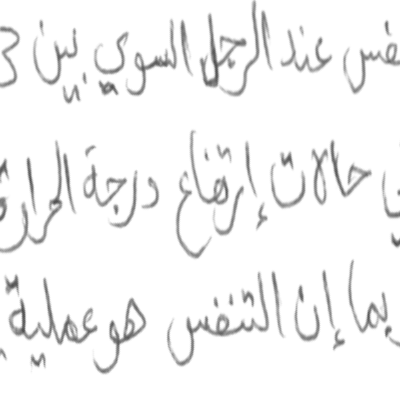 نفس عند الرجل السوي بين 3
في حالات إرتفاع درجة الحرارة
بما إن التنفس هو عملية